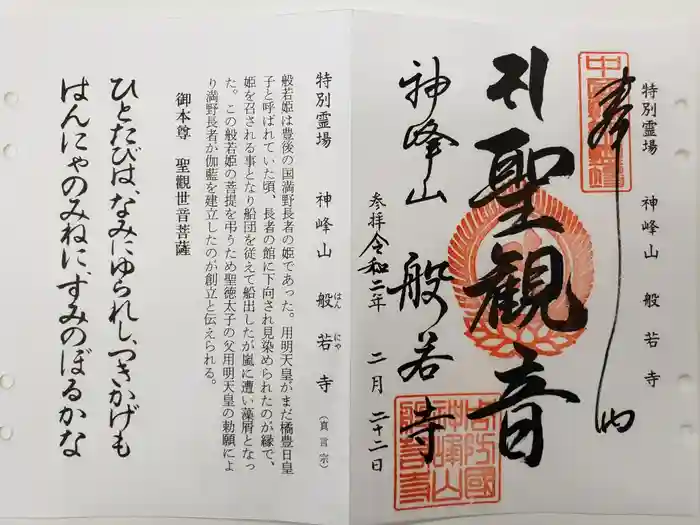 特別霊場 神峰山 般若寺
奉
納
聖観音
神峰山 般若寺
参拝 令和二年 二月 二十二日
周防國
神峰山
般若寺
特別霊場 神峰山 般若寺 (真言宗)
はん にゃ
般若姫は豊後の国満野長者の姫であった。用明天皇がまだ橘豊日皇
子と呼ばれていた頃、長者の館に下向され見染められたのが縁で、
姫を召される事となり船団を従えて船出したが嵐に遭い藻屑となっ
た。この般若姫の菩提を弔うため聖徳太子の父用明天皇の勅願によ
り満野長者が伽藍を建立したのが創立と伝えられる。
御本尊 聖觀世音菩薩
ひとたびは、なみにゆられし、つきかげも
はんにゃのみねに、ずみのぼるかな